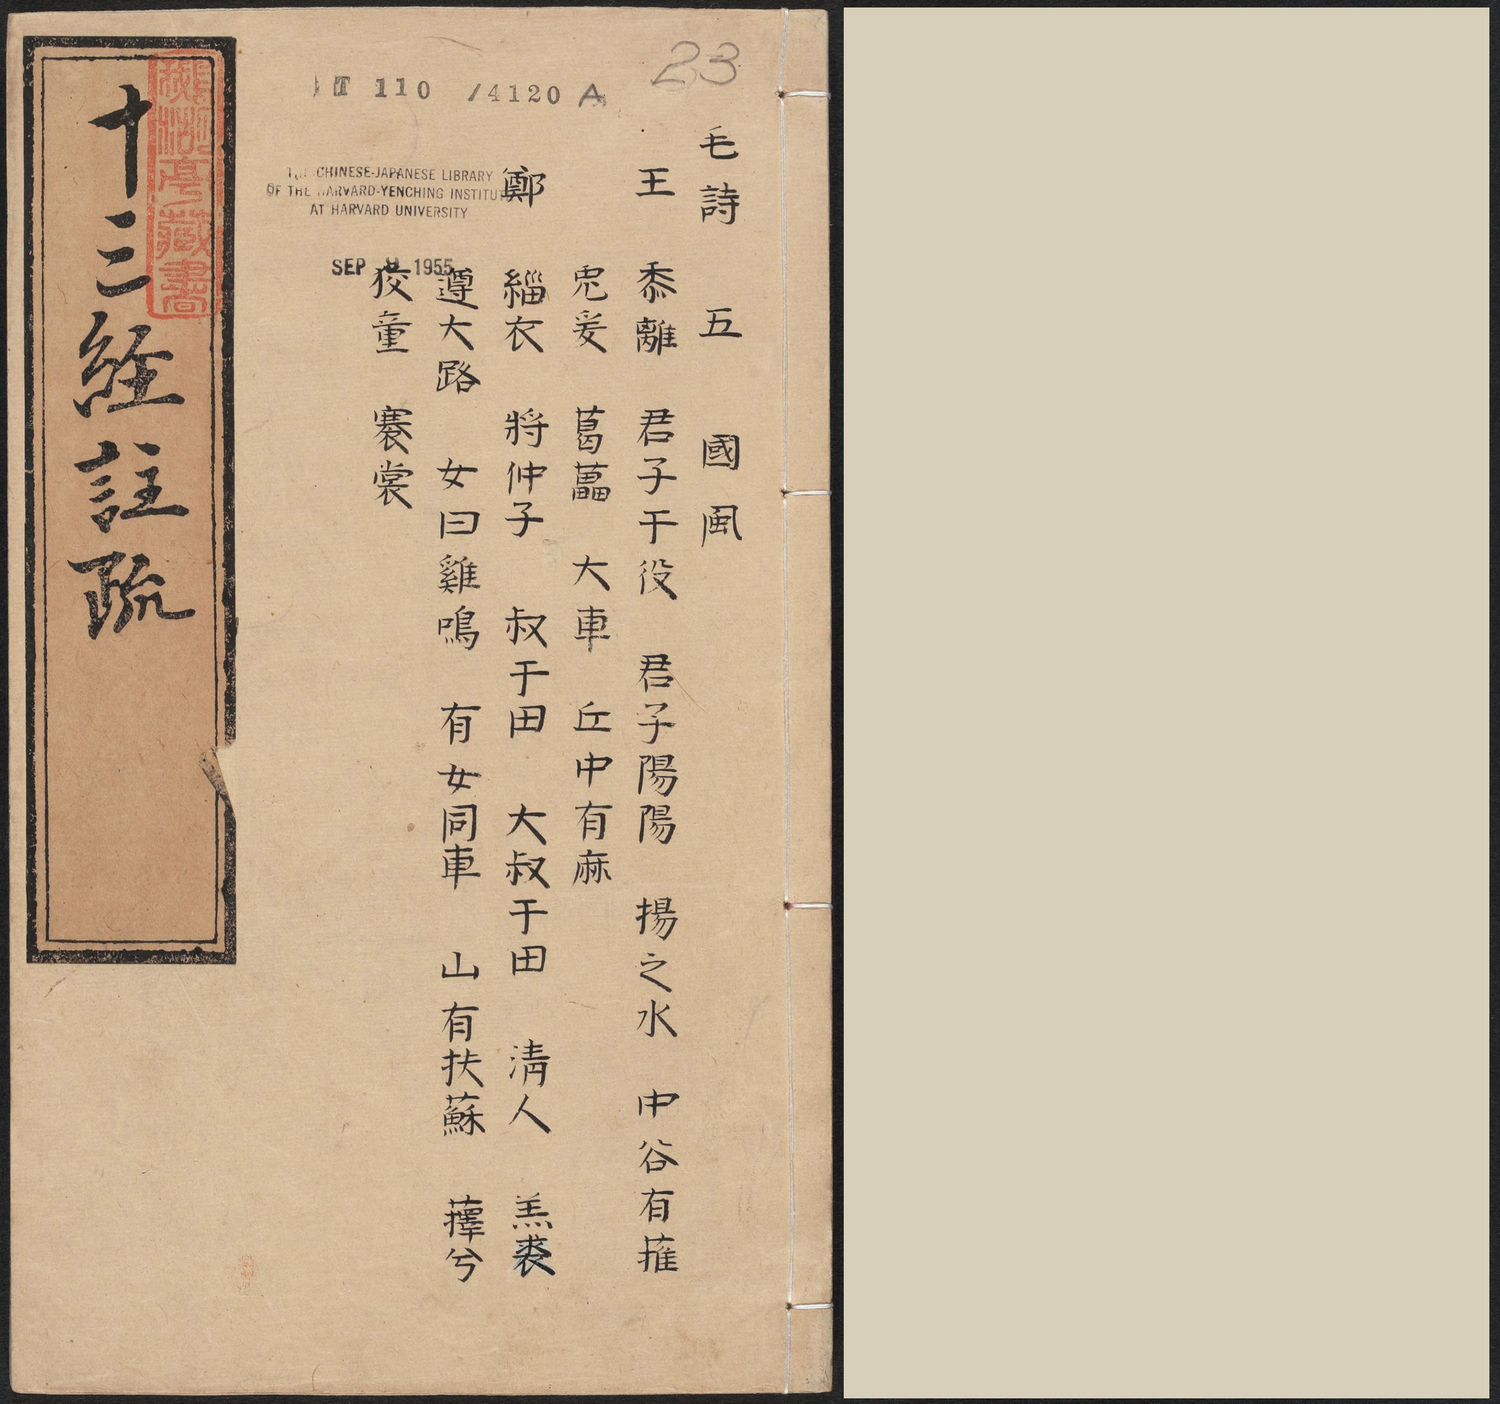 23
T 110 /4120 A
毛詩 五 國風
王 黍離 君子于役 君子陽陽 揚之水 中谷有蓷
兎爰 葛藟 大車 丘中有麻
鄭 緇衣 將仲子 叔于田 大叔于田 清人 羔裘
遵大路 女曰雞鳴 有女同車 山有扶蘇 蘀兮
狡童 褰裳
THE CHINESE-JAPANESE LIBRARY
OF THE HARVARD-YENCHING INSTITUTE
AT HARVARD UNIVERSITY
SEP 1955
十三經註疏
湖亭藏書